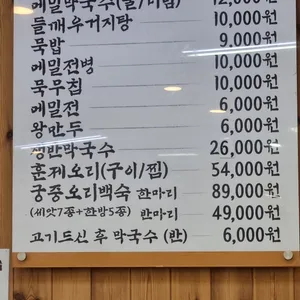 메밀막국수(물/비빔) 12,000원
들깨우거지탕 10,000원
묵밥 9,000원
메밀전병 10,000원
묵무침 10,000원
메밀전 6,000원
왕만두 6,000원
쟁반막국수 26,000원
훈제오리(구이/찜) 54,000원
궁중오리백숙 한마리 89,000원
(씨앗7종+한방5종) 반마리 49,000원
고기드신 후 막국수 (반) 6,000원